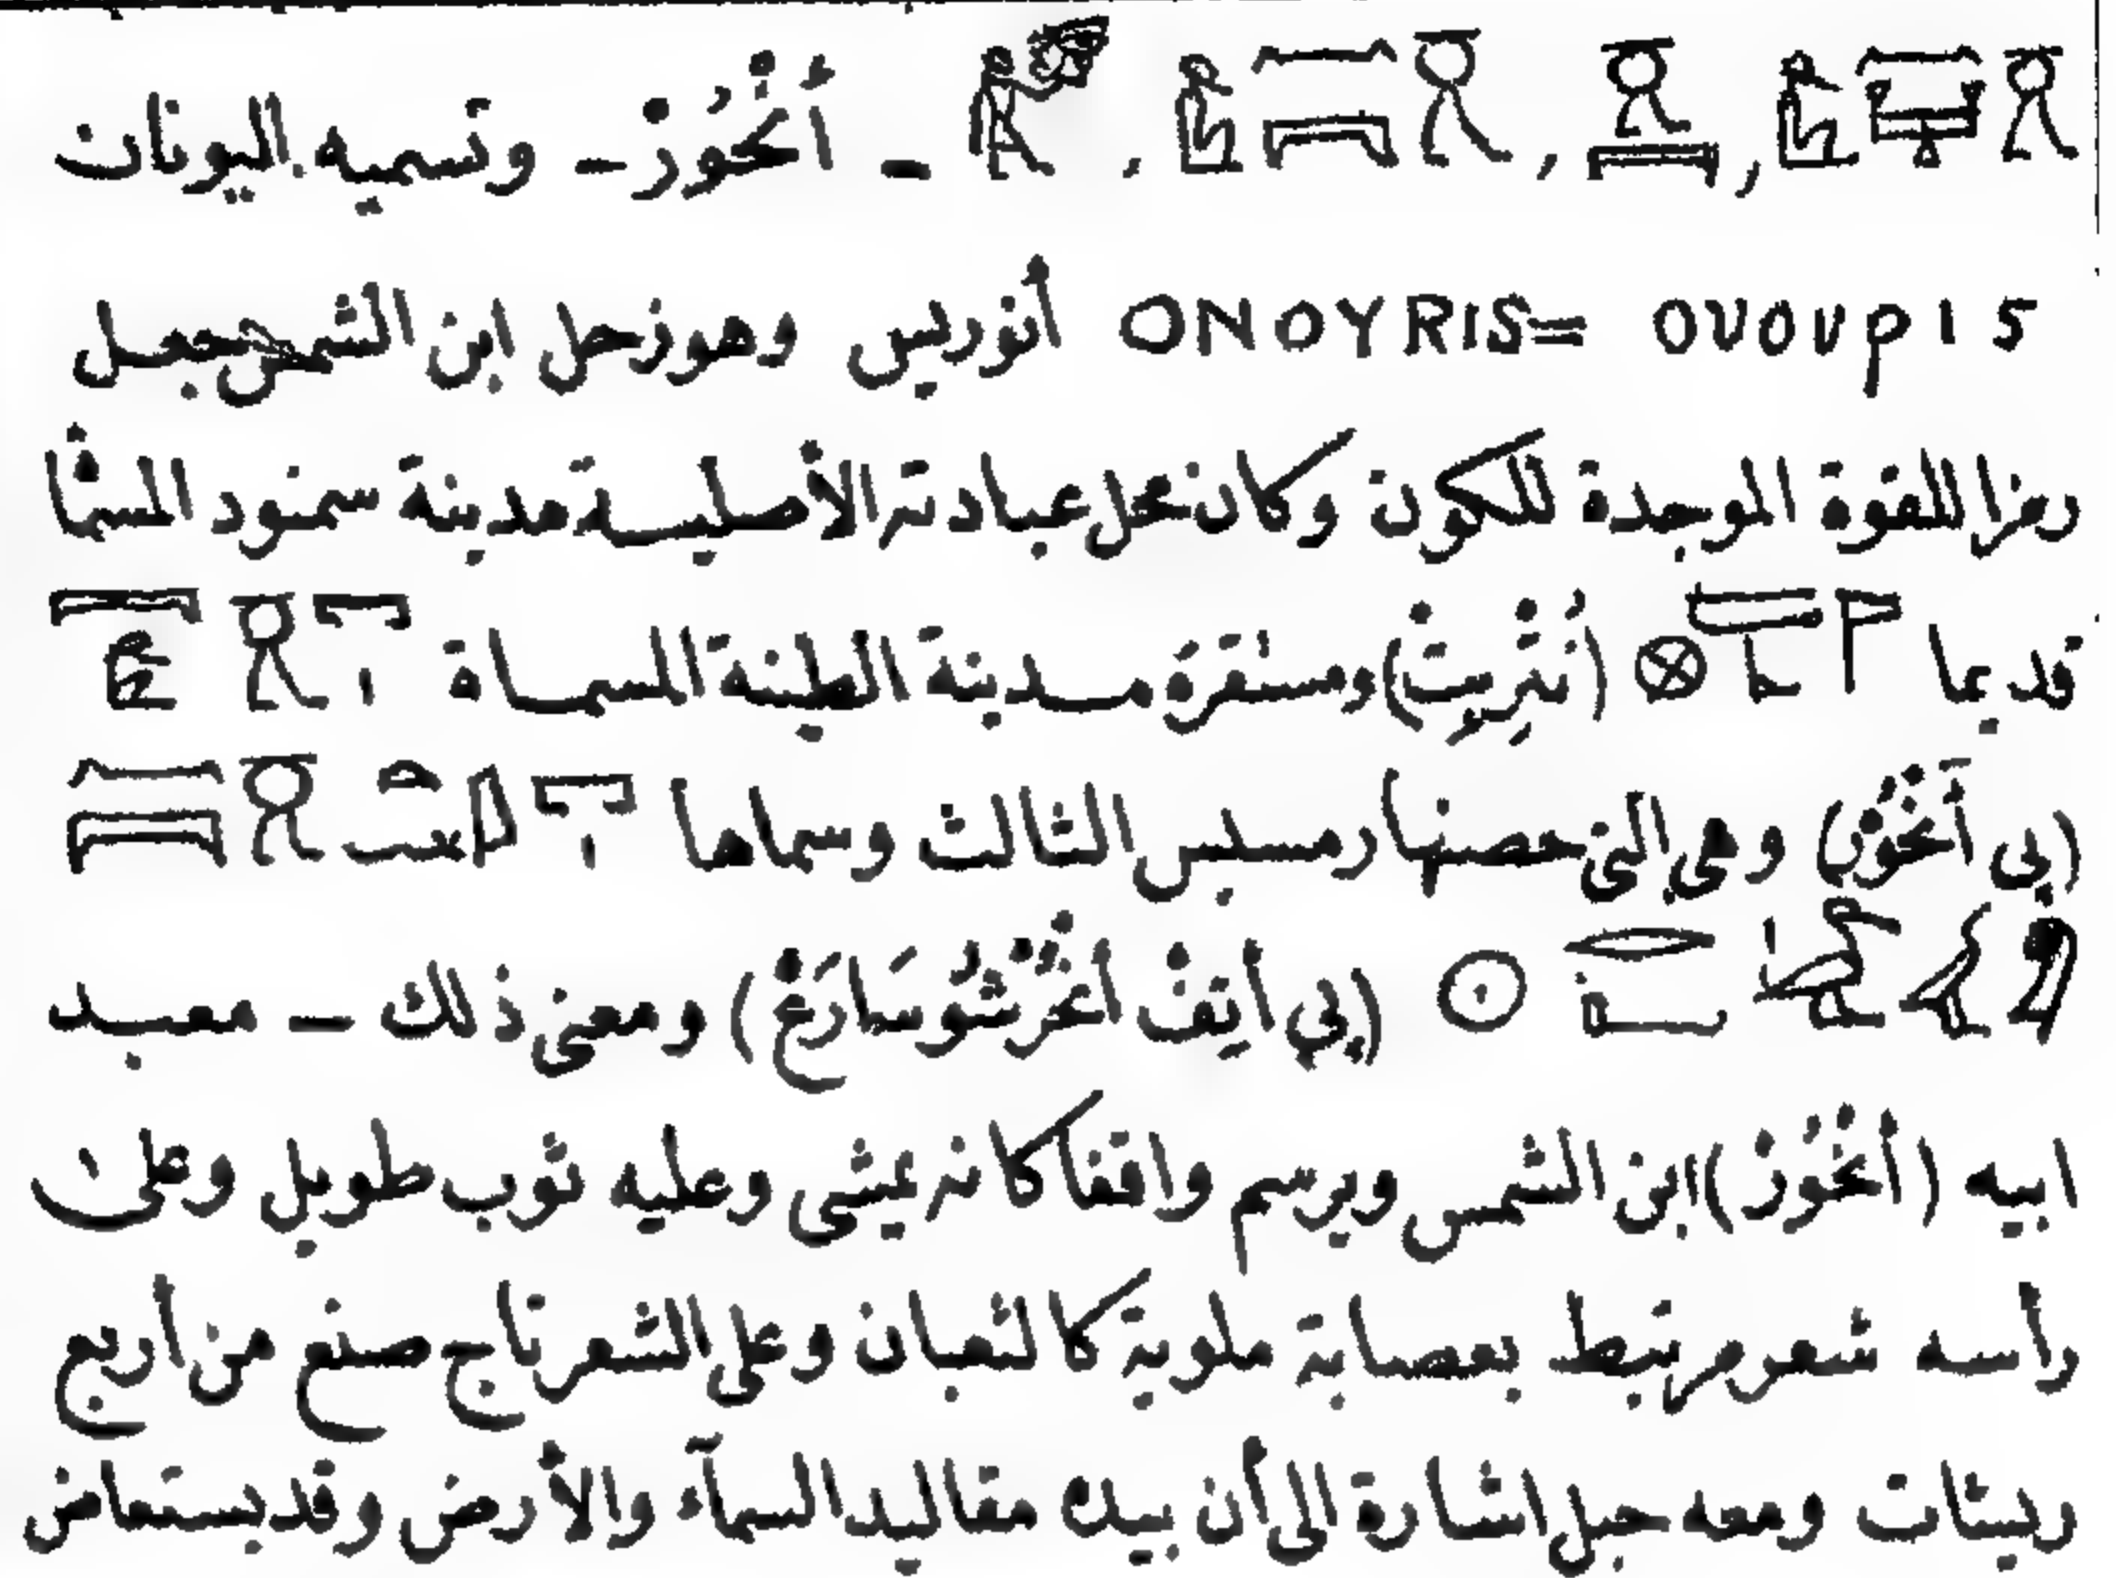 – أَنْحُورْ – وتسميه اليونان
ονουρις =ONOYRIS أنوريس وهو زحل ابن الشمس جعل
رمزا للقوة الموجدة للكون وكان محل عبادته الأصلية مدينة سمنود المسماة
قديما (نُتْرِيتْ) ومستقرة مدينة الطينة المسماة
(بِي أَنْحُورْ) وهي التي حصنها رمسيس الثالث وسماها
(بِي أتِفْ أنْحُرْشُو سَارَعْ) ومعنى ذلك – معبد
ابيه (أنْحُورْ) ابن الشمس ويرسم واقفا كانه يمشى وعليه ثوب طويل وعلى
رأسه شعر مرتبط بعصابة ملوية كالثعبان وعلى الشعر تاج صنع من أربع
ريشات ومعه حبل اشارة الى أن بيده مقاليد السمآء والأرض وقد يستعاض